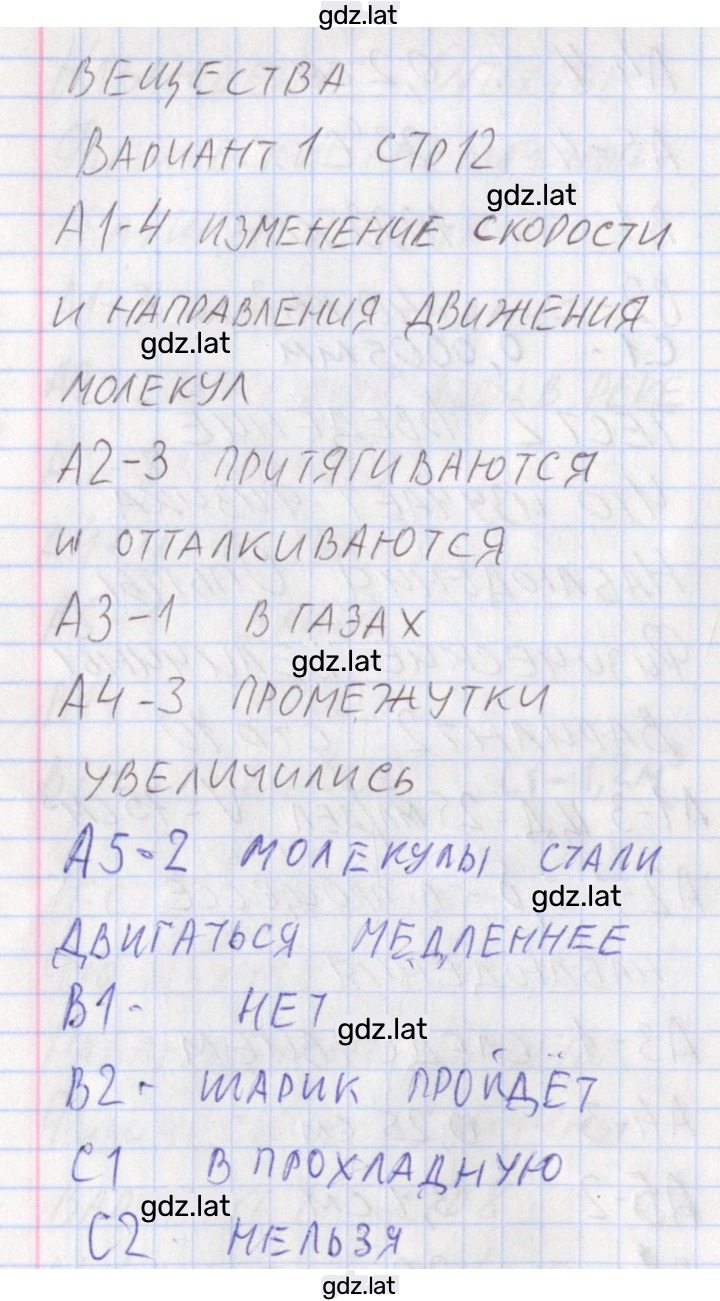 gdz.lat
ВЕЩЕСТВА
ВАРИАНТ 1 СТР 12
gdz.lat
А1-4 ИЗМЕНЕНИЕ СКОРОСТИ
И НАПРАВЛЕНИЯ ДВИЖЕНИЯ
gdz.lat
МОЛЕКУЛ
А2-3 ПРИТЯГИВАЮТСЯ
И ОТТАЛКИВАЮТСЯ
А3-1 В ГАЗАХ
gdz.lat
А4-3 ПРОМЕЖУТКИ
УВЕЛИЧИЛИСЬ
А5-2 МОЛЕКУЛЫ СТАЛИ
gdz.lat
ДВИГАТЬСЯ МЕДЛЕННЕЕ
В1- НЕТ
gdz.lat
В2- ШАРИК ПРОЙДЁТ
С1 В ПРОХЛАДНУЮ
gdz.lat
С2 НЕЛЬЗЯ
gdz.lat